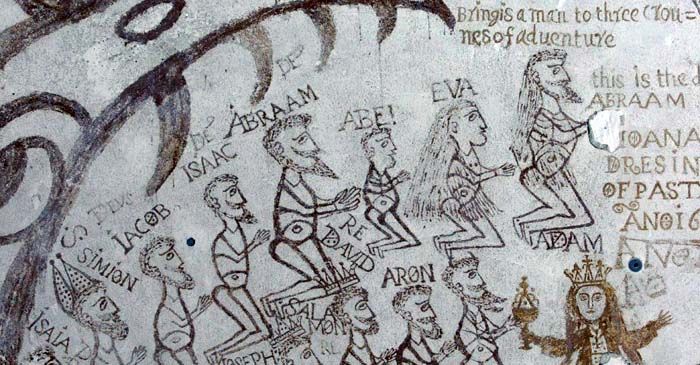 Bring is a man to three Crou=
nes of adventure
this is the
ABRAAM
IOANA
DRESIN
OF PAST
ANOIC
DE
ABRAAM
ABEl
EVA
DE
ISAAC
S DEUS
IACOB
SIMION
ISAIA
RE
DAVID
ARON
ADAM
SALAMON
RE
IOSEPH